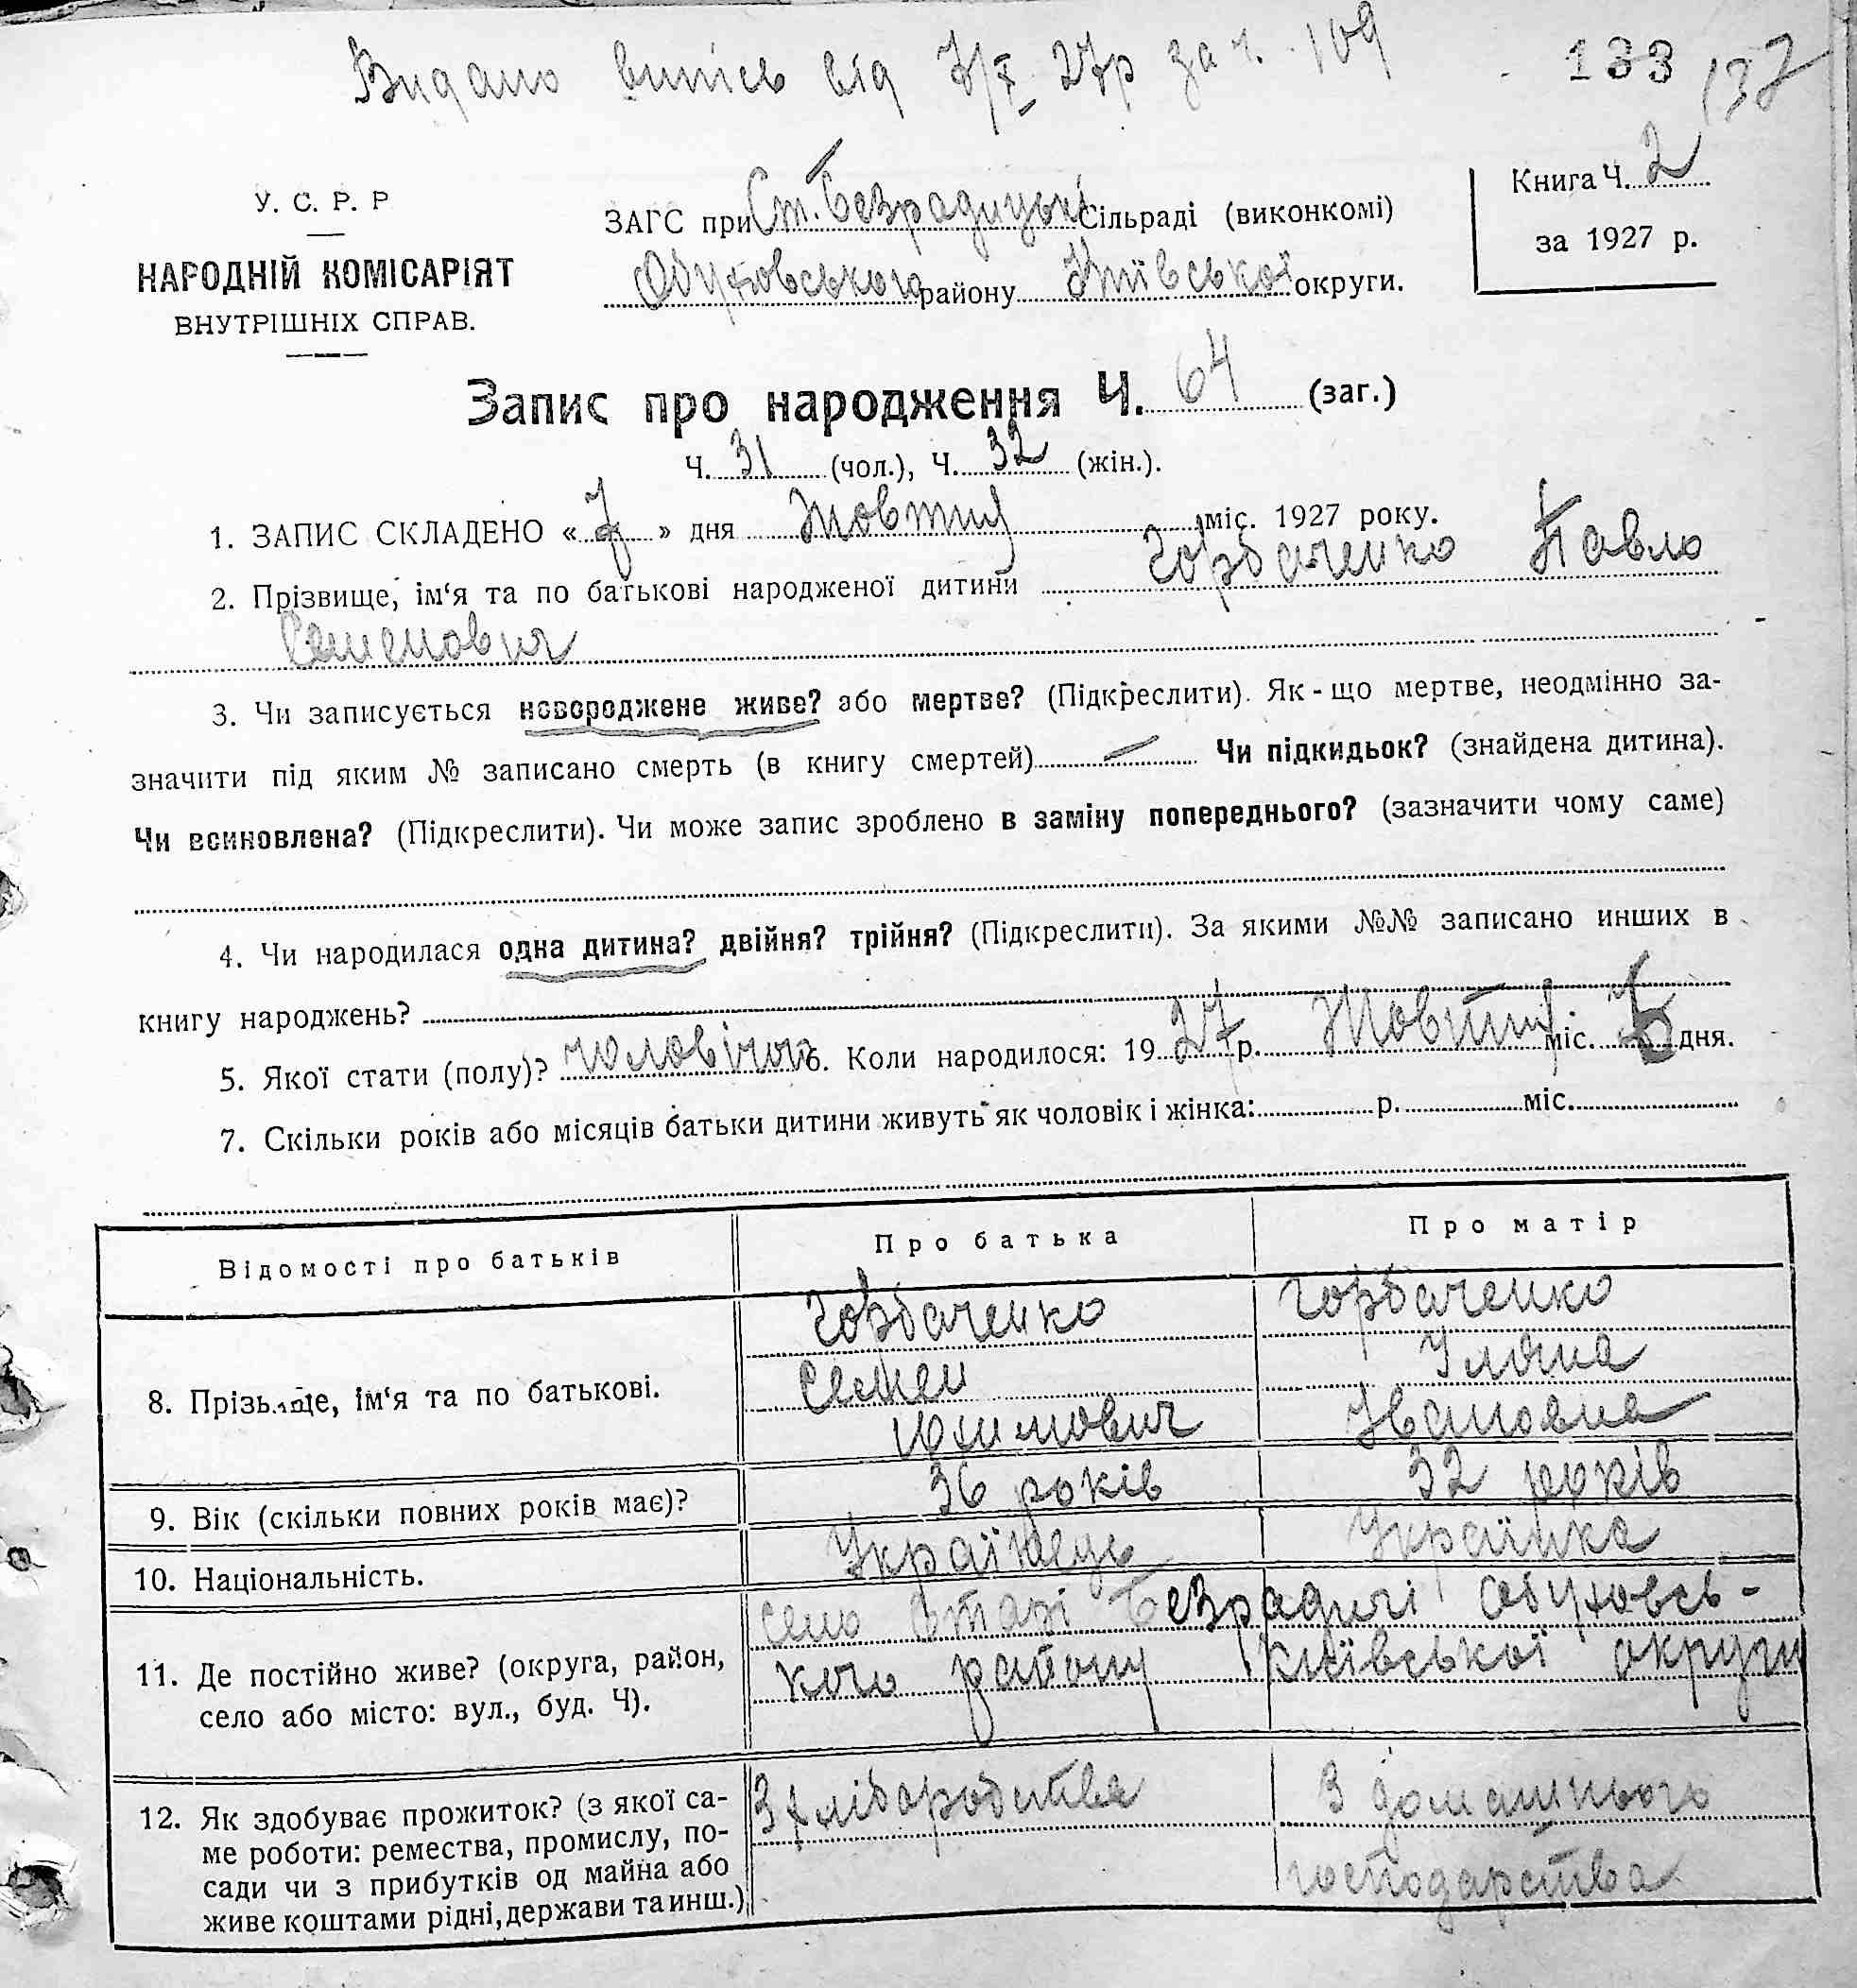 Видано витісь від 7/X 27р за ч. 109
133 132
У. С. Р. Р
НАРОДНІЙ КОМІСАРІЯТ
ВНУТРІШНІХ СПРАВ.
ЗАГС при Ст. Безрадицькі Сільраді (виконкомі)
Обуховського району Київської округи.
Книга Ч. 2
за 1927 р.
Запис про народження Ч. 64 (заг.)
Ч. 31 (чол.), Ч. 32 (жін.).
1. ЗАПИС СКЛАДЕНО « 7 » дня Жовтня міс. 1927 року.
2. Прізвище, ім‘я та по батькові народженої дитини Горбаченко Павло
Семенович
3. Чи записується новороджене живе? або мертве? (Підкреслити). Як-що мертве, неодмінно за-
значити під яким № записано смерть (в книгу смертей) — Чи підкидьок? (знайдена дитина).
Чи всиновлена? (Підкреслити). Чи може запис зроблено в заміну попереднього? (зазначити чому саме)
4. Чи народилася одна дитина? двійня? трійня? (Підкреслити). За якими №№ записано инших в
книгу народжень?
5. Якої стати (полу)? чоловічої 6. Коли народилося: 1927 р. Жовтня міс. дня.
7. Скільки років або місяців батьки дитини живуть як чоловік і жінка: р. міс.
Відомості про батьків Про батька Про матір
8. Прізвище, ім‘я та по батькові.
Горбаченко Горбаченко
Семен Уляна
Юхимович Івановна
9. Вік (скільки повних років має)? 36 років 32 років
10. Національність. Українець Українка
11. Де постійно живе? (округа, район,
село або місто: вул., буд. Ч).
село Старі Безрадичі Обуховсь-
кого району Київської округи
12. Як здобуває прожиток? (з якої са-
ме роботи: ремества, промислу, по-
сади чи з прибутків од майна або
живе коштами рідні, держави та инш.)
З хліборобства З домашнього
господарства